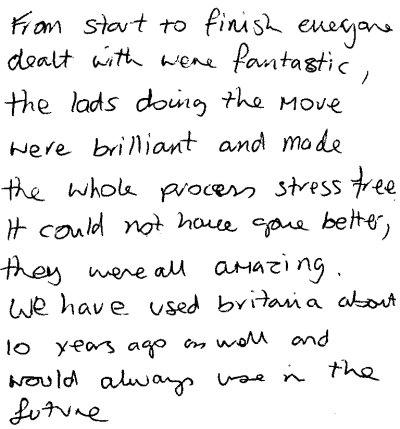 From start to finish everyone
dealt with were fantastic,
the lads doing the move
were brilliant and made
the whole process stress free
It could not have gone better,
they were all amazing.
We have used britania about
10 years ago as well and
would always use in the
future